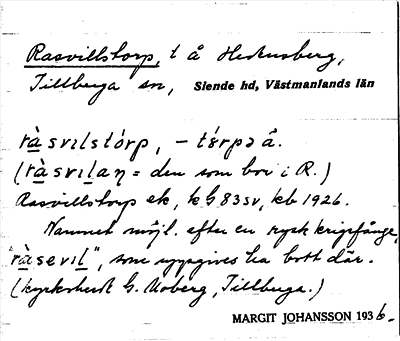 Rasvillstorp, t å Hedensberg,
Tillberga sn, Siende hd, Västmanlands län
ràsvilstórp, – tórpǝ å.
(ràsvilaŋ = den som bor i R.)
Rasvillstorp ek, kG 83 sv, kb 1926.
Namnet möjl. efter en rysk krigsfånge,
"ràsevil", som uppgives ha bott där.
(kyrkoherde G. Moberg, Tillberga.)
MARGIT JOHANSSON 1936.